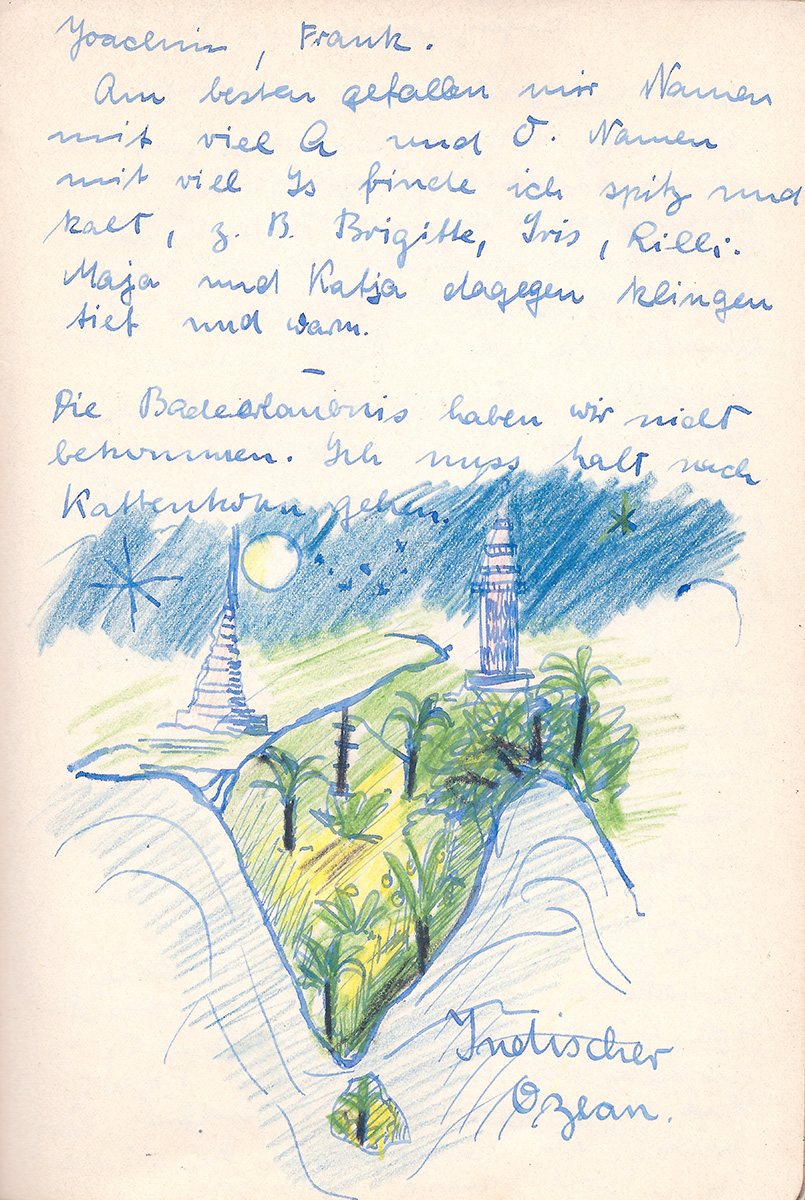 Joachim, Frank.
Am besten gefallen mir Namen
mit viel A und O. Namen
mit viel Is finde ich spitz und
kalt, z. B. Brigitte, Iris, Lilli.
Maja und Katja dagegen klingen
tief und warm.
Die Badeerlaubnis haben wir nicht
bekommen. Ich muss halt nach
Kattenhohn gehen.
Indischer
Ozean.